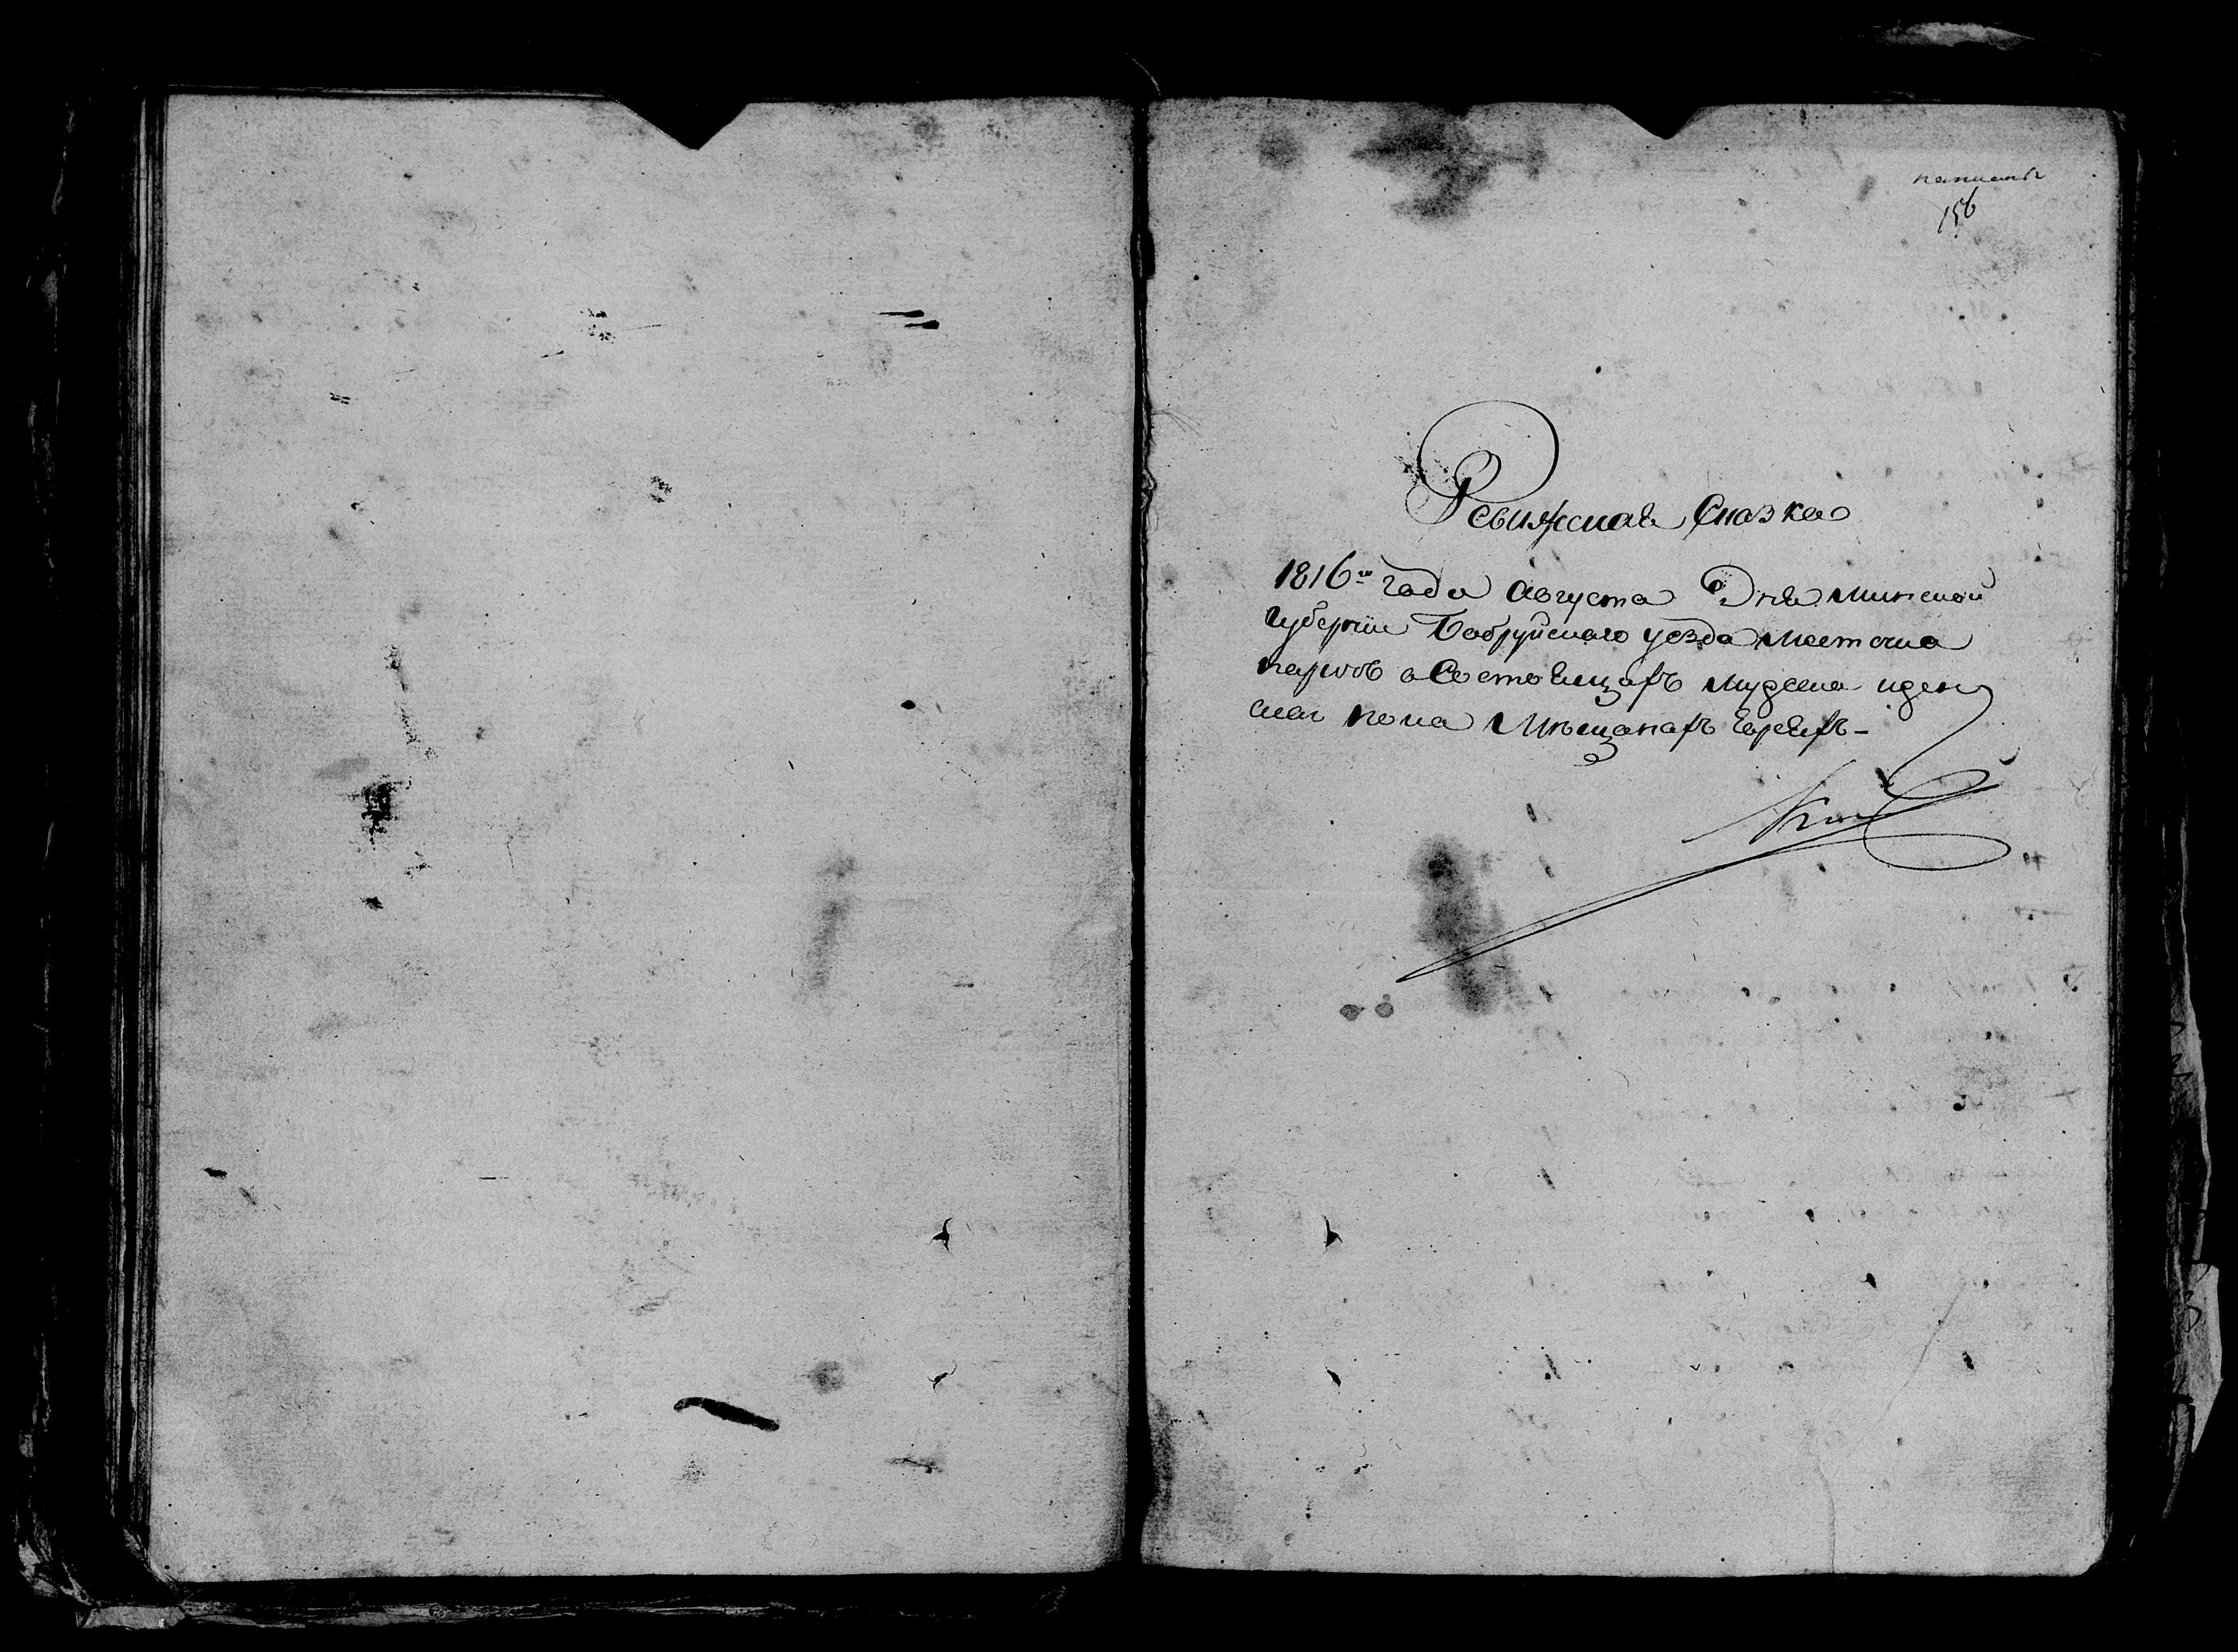 156
Ревижская Сказка
1816го года Августа Дня минской
губернии Бобруйскаго уезда местечка
паричь о Состоящихъ мужеска ижен
ска пола Мѣщанахъ Евреяхъ –